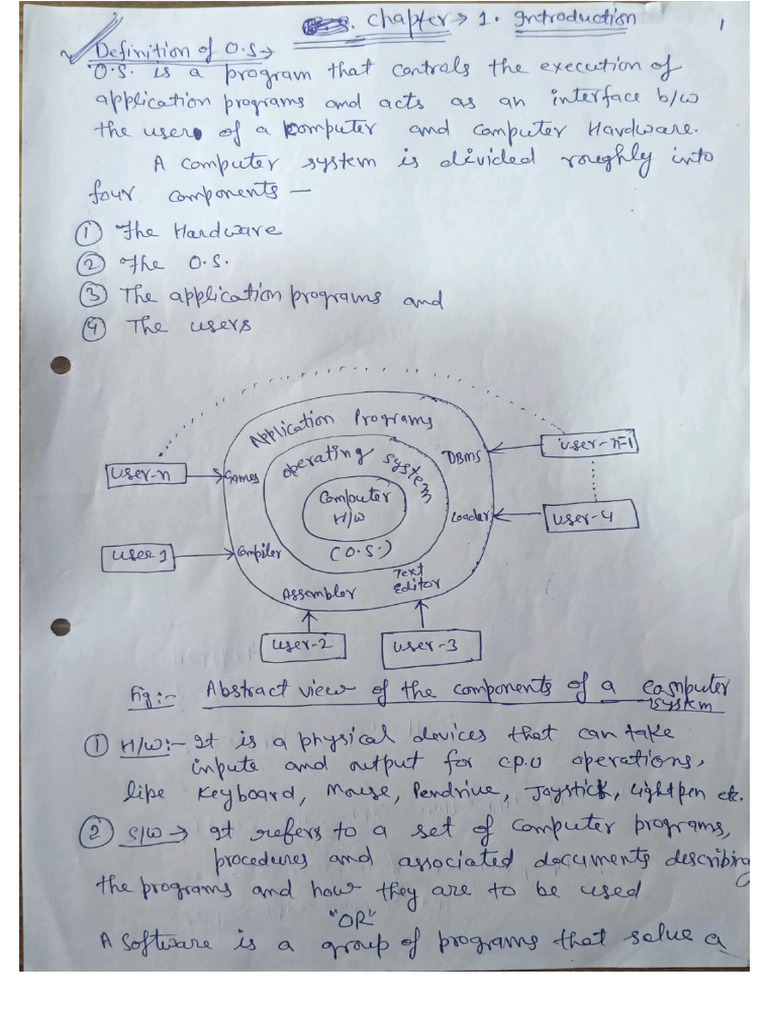 Chapter → 1. Introduction 1
Definition of O.S →
O.S. is a program that controls the execution of
application programs and acts as an interface b/w
the user of a computer and computer Hardware.
A computer system is divided roughly into
four components —
① The Hardware
② The O.S.
③ The application programs and
④ The users
Application Programs
Operating System
(O.S.)
Computer
H/W
User-n
Games
User 1
Compiler
Assembler
User-2
Text
Editor
User-3
DBMS
User-n-1
Loader
User-4
Fig:- Abstract view of the components of a computer
system
① H/W:- It is a physical devices that can take
inpute and output for C.P.U operations,
like Keyboard, Mouse, Pendrive, Joystick, Lightpen etc.
② S/W → It refers to a set of computer programs,
procedures and associated documents describing
the programs and how they are to be used
"OR"
A Software is a group of programs that solve a